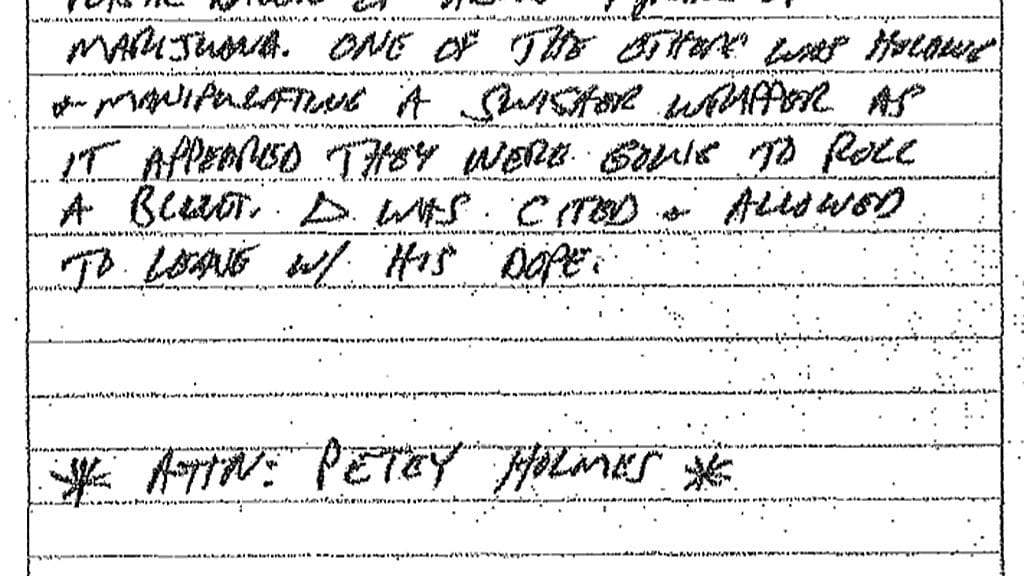 MARIJUANA. ONE OF THE OTHERS WAS HOLDING
& MANIPULATING A SWISHER WRAPPER AS
IT APPEARED THEY WERE GOING TO ROLL
A BLUNT. Δ WAS CITED & ALLOWED
TO LEAVE W/ HIS DOPE.
* ATTN: PETEY HOLMES *